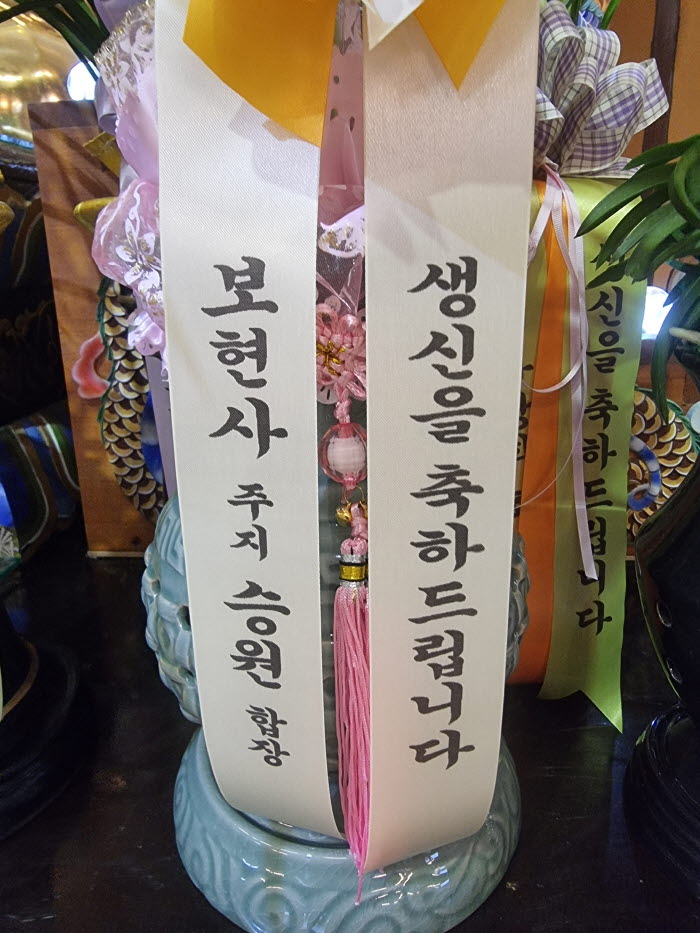 보현사 주지 승원 합장
생신을 축하드립니다
신을 축하드립니다